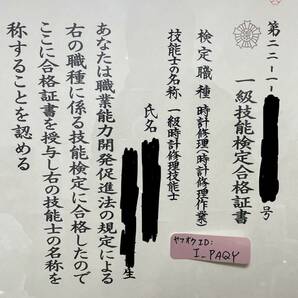 第二二-一-
号
一級技能検定合格証書
検定職種 時計修理(時計修理作業)
技能士の名称 一級時計修理技能士
氏名
生
あなたは職業能力開発促進法の規定による
右の職種に係る技能検定に合格したので
ここに合格証書を授与し右の技能士の名称を
称することを認める
ヤフオクID:
I_PAQY